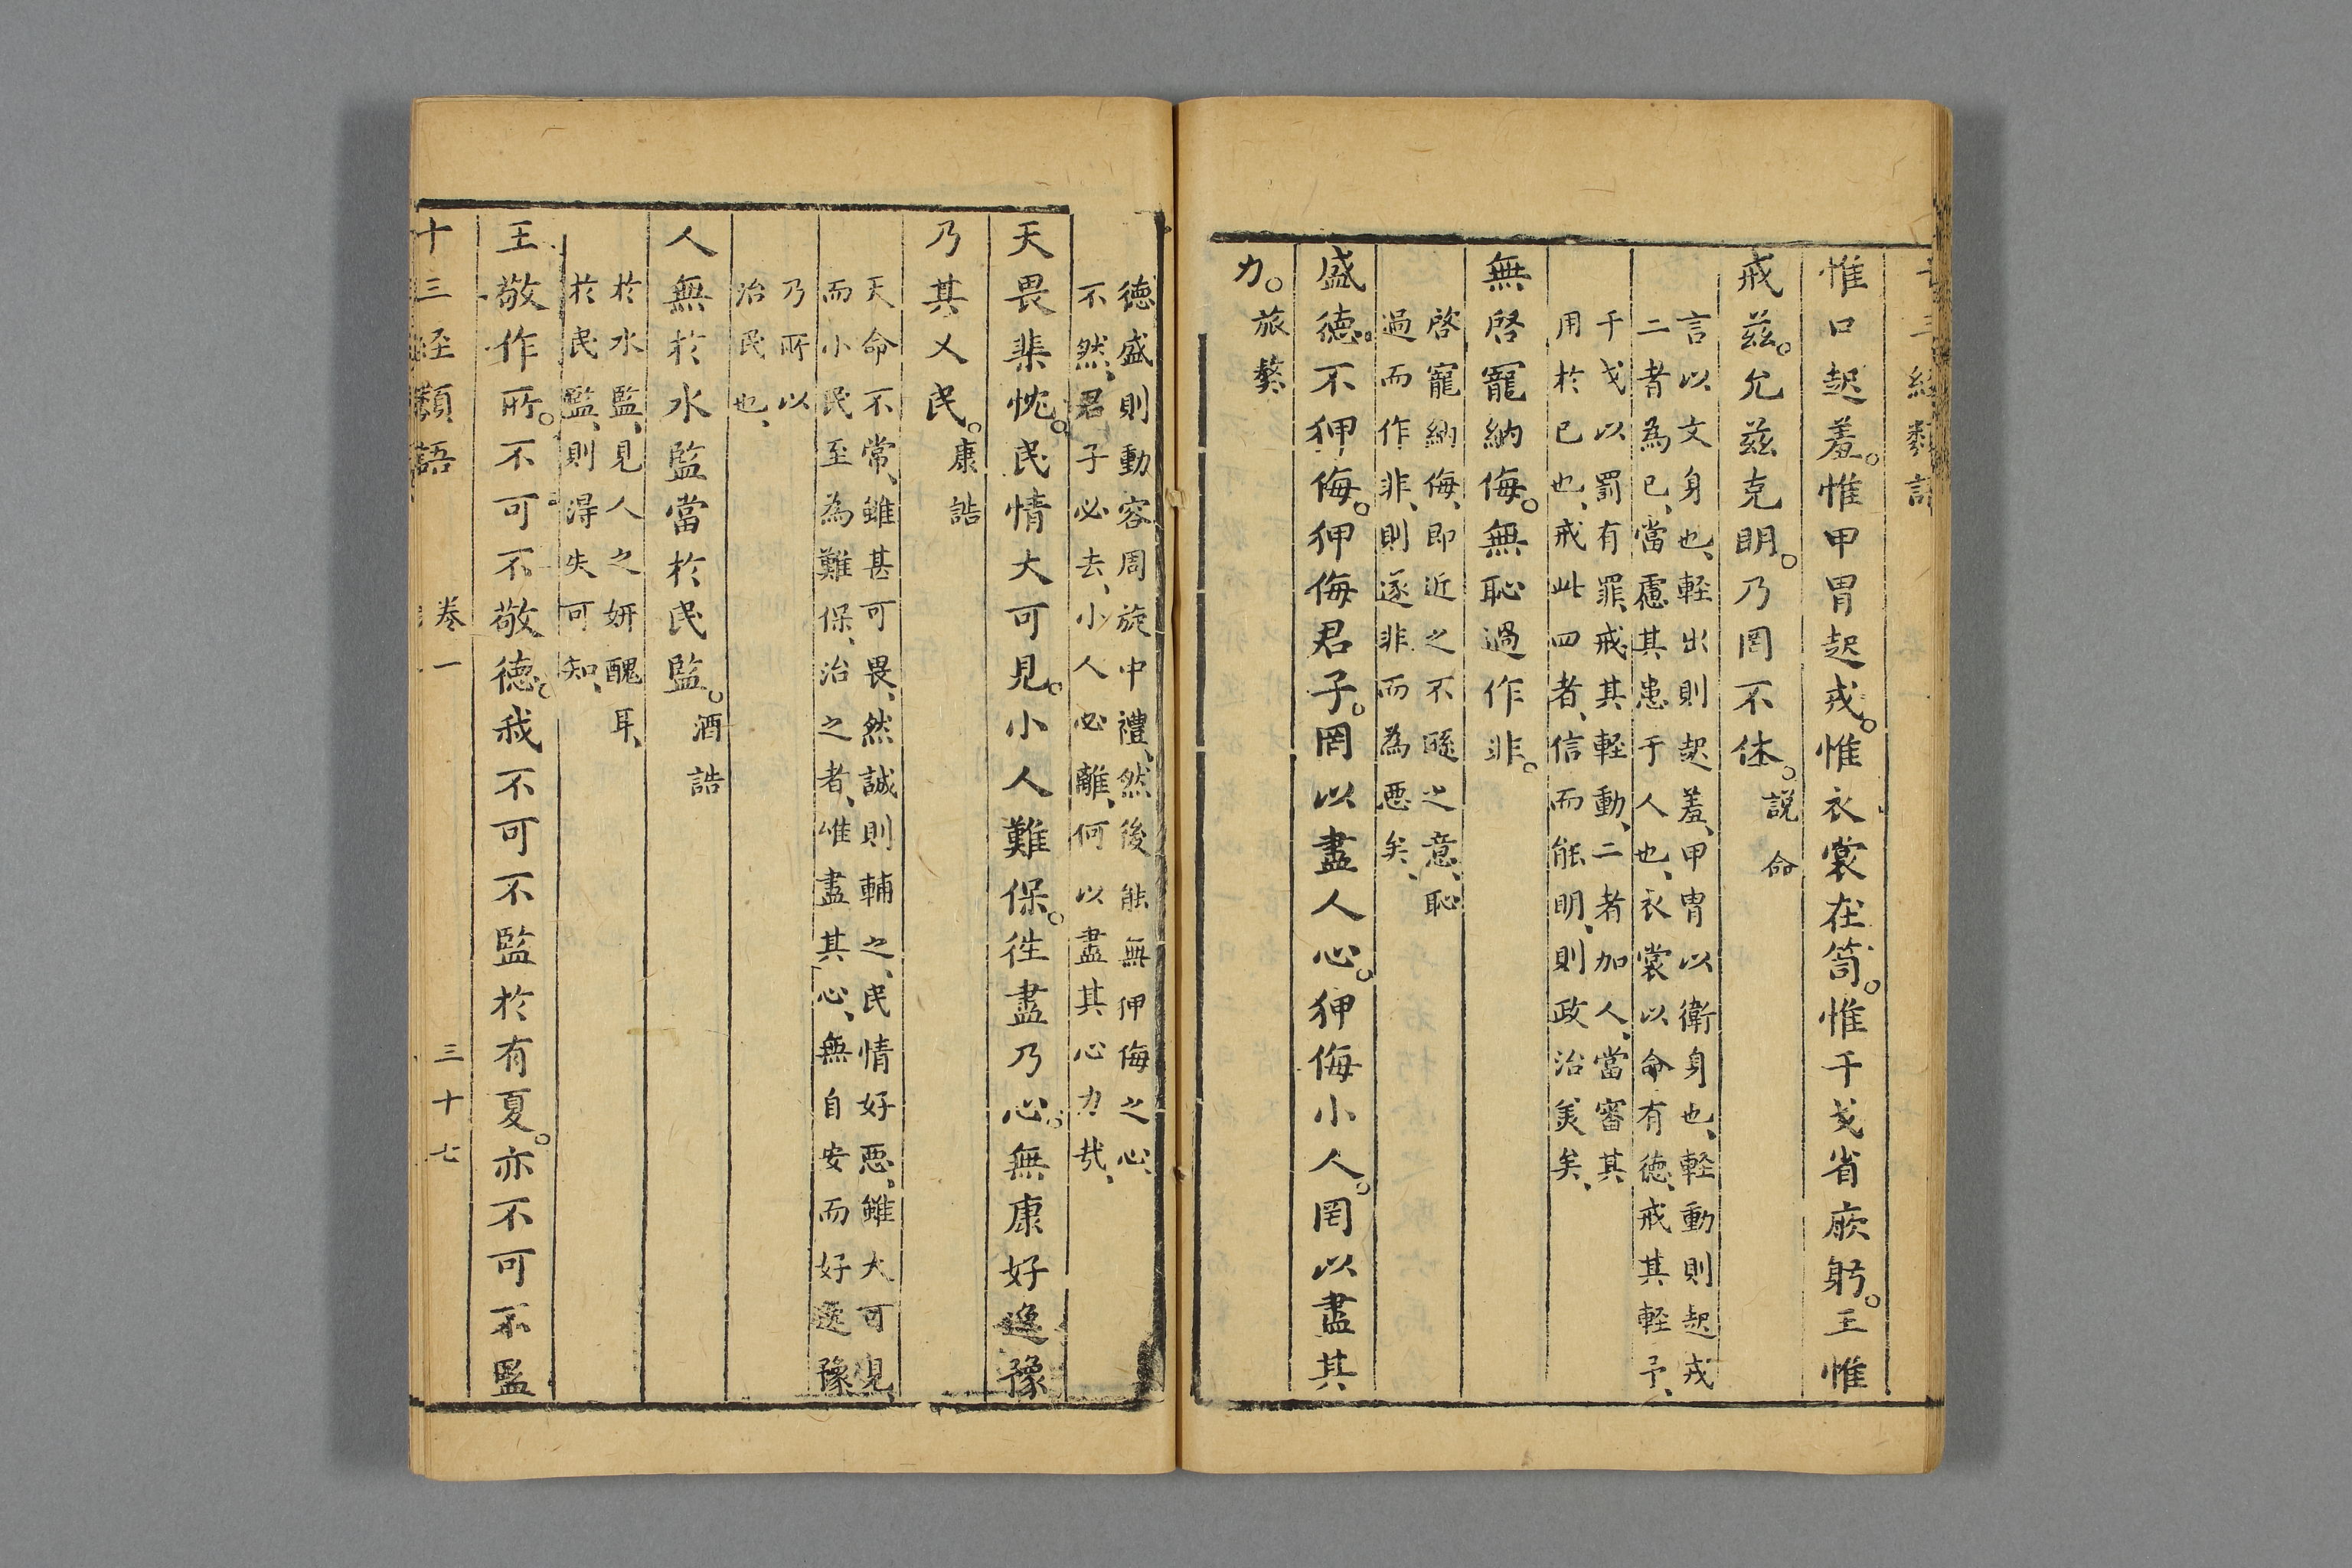 十三經類語
惟口起羞。惟甲冑起戎。惟衣裳在笥。惟干戈省厥躬。王惟
戒茲。允茲克明。乃罔不休。說命
言以文身也、輕出則起羞、甲冑以衛身也、輕動則起戎
二者為已、當慮其患于人也、衣裳以命有德、戒其輕予、
干戈以罰有罪、戒其輕動、二者加人、當審其
用於已也、戒此四者、信而能明、則政治美矣、
無啓寵納侮。無恥過作非。
啓寵納侮、即近之不遜之意、恥
過而作非、則遂非而為惡矣、
盛德。不狎侮。狎侮君子。罔以盡人心。狎侮小人。罔以盡其
力。旅獒
德盛則動容周旋中禮、然後能無狎侮之心、
不然、君子必去、小人必離、何以盡其心力哉、
天畏棐忱。民情大可見。小人難保。徃盡乃心。無康好逸豫
乃其乂民。康誥
天命不常、雖甚可畏、然誠則輔之、民情好惡、雖大可見、
而小民至為難保、治之者、惟盡其心、無自安而好逸豫
乃所以
治民也、
人無於水監當於民監。酒誥
於水監、見人之妍醜耳、
於民監、則得失可知、
王敬作所。不可不敬德。我不可不監於有夏。亦不可不監
十三經類語　卷一　三十七